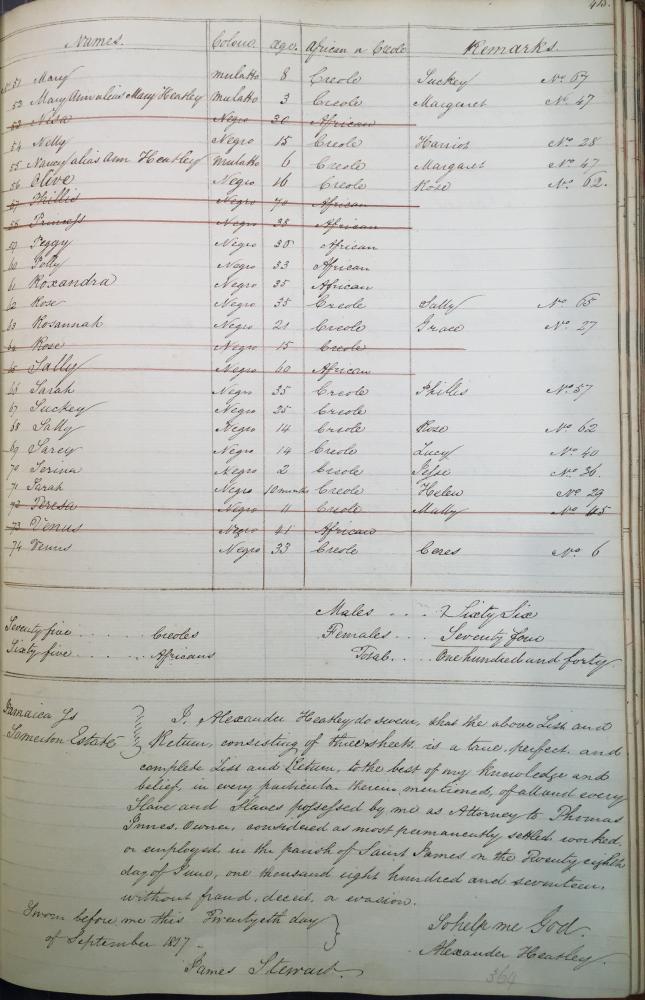 Names. Colour. age. African or Creole Remarks.
No 51 Mary mulatto 8 Creole Suckey No. 67
52 Mary Ann alias Mary Heatley mulatto 3 Creole Margaret No. 47
53 Negro 30 African
54 Nelly Negro 15 Creole Harriot No. 28
55 Nancy alias Ann Heatley mulatto 6 Creole Margaret No. 47
56 Olive Negro 16 Creole Rose No. 62.
57 Phillis Negro 70 African
58 Princess Negro 35 African
59 Peggy Negro 38 African
60 Polly Negro 33 African
61 Roxandra Negro 35 African
62 Rose Negro 35 Creole Sally No. 65
63 Rosannah Negro 21 Creole Grace No. 27
64 Rose Negro 15 Creole
65 Sally Negro 60 African
66 Sarah Negro 35 Creole Phillis No. 57
67 Suckey Negro 25 Creole
68 Sally Negro 14 Creole Rose No. 62
69 Negro 14 Creole Lucy No. 40
70 Negro 2 Creole No. 36.
71 Sarah Negro 10 months Creole Helen No. 29
72 Teresa Negro 11 Creole No. 45
73 Venus Negro 41 African
74 Venus Negro 33 Creole Ceres No. 6
Males .... Sixty Six
Seventy five ..... Creoles Females ... Seventy four
Sixty five ..... Africans Total ... One hundred and forty
Jamaica Ss I, Alexander Heatley do swear, that the above List and
Estate Return, consisting of three sheets is a true, perfect and
complete List and Return, to the best of my knowledge and
belief, in every particular therein mentioned, of all and every
Slave and Slaves possessed by me as Attorney to Thomas
Innes, Owner, considered as most permanently settled, worked,
or employed, in the parish of Saint James on the Twenty eighth
day of June, one thousand eight hundred and seventeen,
without fraud, deceit, or evasion.
Sworn before me this Twentyeth day So help me God.
of September 1817 Alexander Heatley.
James Stewart.
364